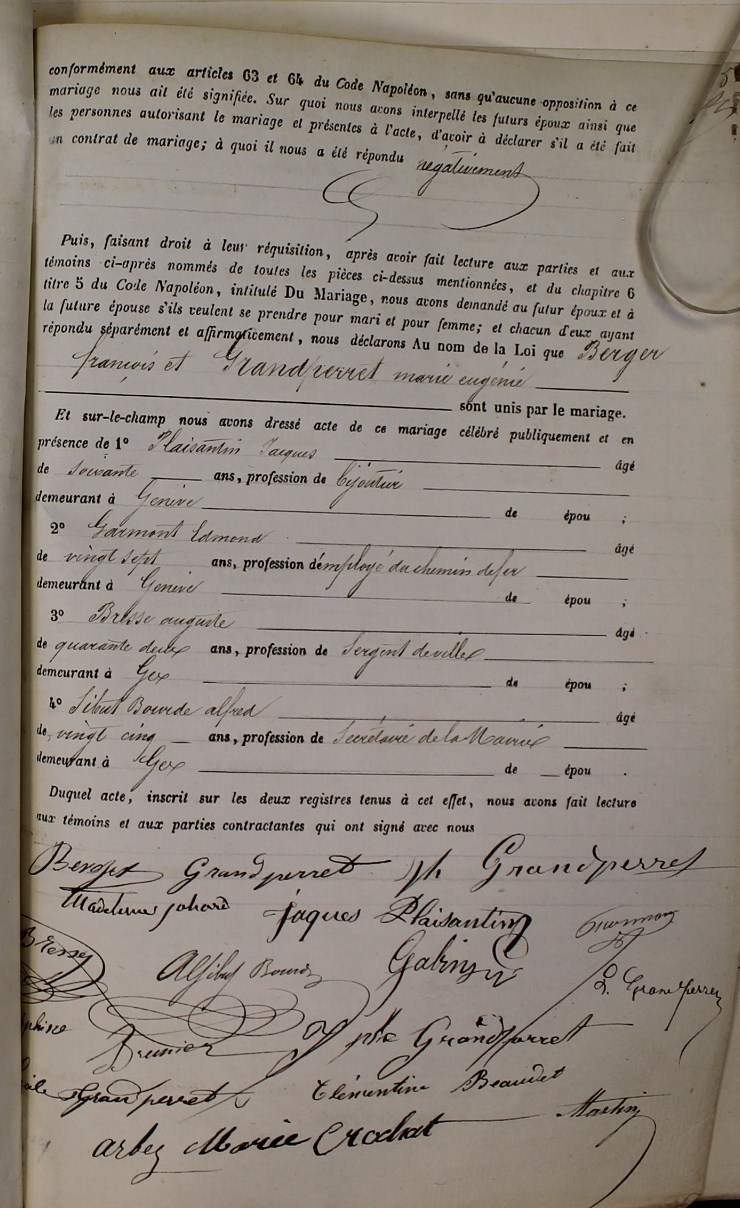 conformément aux articles 63 et 64 du Code Napoléon, sans qu'aucune opposition à ce
mariage nous ait été signifiée. Sur quoi nous avons interpellé les futurs époux ainsi que
les personnes autorisant le mariage et présentes à l'acte, d'avoir à déclarer s'il a été fait
un contrat de mariage; à quoi il nous a été répondu négativement
Puis, faisant droit à leur réquisition, après avoir fait lecture aux parties et aux
témoins ci-après nommés de toutes les pièces ci-dessus mentionnées, et du chapitre 6
titre 5 du Code Napoléon, intitulé Du Mariage, nous avons demandé au futur époux et à
la future épouse s'ils veulent se prendre pour mari et pour femme; et chacun d'eux ayant
répondu séparément et affirmativement, nous déclarons Au nom de la Loi que Berger
françois et Grandperret marie eugénie
sont unis par le mariage.
Et sur-le-champ nous avons dressé acte de ce mariage célébré publiquement et en
présence de 1° Plaisantin Jacques âgé
de soixante ans, profession de bijoutier
demeurant à Genève de épou ;
2° Garmont Edmond âgé
de vingt sept ans, profession d'employé du chemin de fer
demeurant à Genève de épou ;
3° Bresse auguste âgé
de quarante deux ans, profession de Sergent de ville
demeurant à Gex de épou ;
4° Bourde alfred âgé
de vingt cinq ans, profession de Secrétaire de la Mairie
demeurant à Gex de épou .
Duquel acte, inscrit sur les deux registres tenus à cet effet, nous avons fait lecture
aux témoins et aux parties contractantes qui ont signé avec nous
Grandperret ph Grandperret
Madeleine Johard Jaques Plaisantin
Bourde
L. Grandperret
Brunier Grandperret
Grandperret Clémentine Beaudet
Martin
arbez Marie Crochat